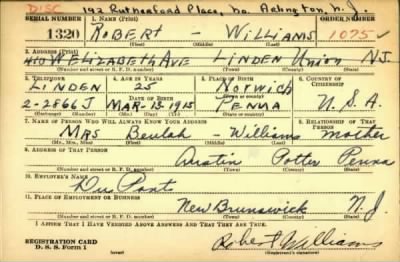 DISC 192 Rutherford Place, No. Arlington, N.J.
SERIAL NUMBER 1. NAME (Print) ORDER NUMBER
1320 ROBERT - WILLIAMS 1075
(First) (Middle) (Last)
2. ADDRESS (Print)
410 W ELIZABETH AVE LINDEN Union N.J.
(Number and street or R. F. D. number) (Town) (County) (State)
3. TELEPHONE 4. AGE IN YEARS 5. PLACE OF BIRTH 6. COUNTRY OF CITIZENSHIP
LINDEN 25 NORWICH
DATE OF BIRTH (Town or county)
2-2866 J MAR. 13 1915 PENNA U.S.A.
(Exchange) (Number) (Mo.) (Day) (Yr.) (State or country)
7. NAME OF PERSON WHO WILL ALWAYS KNOW YOUR ADDRESS 8. RELATIONSHIP OF THAT PERSON
MRS Beulah - Williams mother
(Mr., Mrs., Miss) (First) (Middle) (Last)
9. ADDRESS OF THAT PERSON
Austin Potter Penna
(Number and street or R. F. D. number) (Town) (County) (State)
10. EMPLOYER'S NAME
Du Ponts
11. PLACE OF EMPLOYMENT OR BUSINESS
New Brunswick N.J.
(Number and street or R. F. D. number) (Town) (County) (State)
I AFFIRM THAT I HAVE VERIFIED ABOVE ANSWERS AND THAT THEY ARE TRUE.
REGISTRATION CARD
D. S. S. Form 1 (over) Robert Williams
(Registrant's signature)